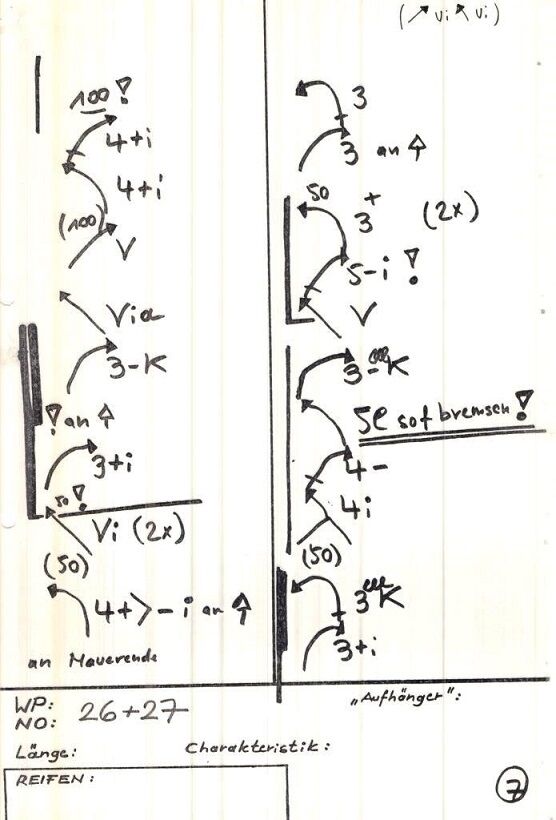 (↗ Vi ↖ Vi)
100 !
4+i
4+i
(100)
V
Via
3-K
! an ⇧
3+i
50 !
Vi (2x)
(50)
4+>-i an ⇧
an Mauerende
3
3 an ⇧
50
3+ (2x)
5-i !
V
3-K
5e sof bremsen !
4-
4i
(50)
3K
3+i
WP:
NO: 26+27
"Aufhänger":
Länge:
Charakteristik:
REIFEN:
7